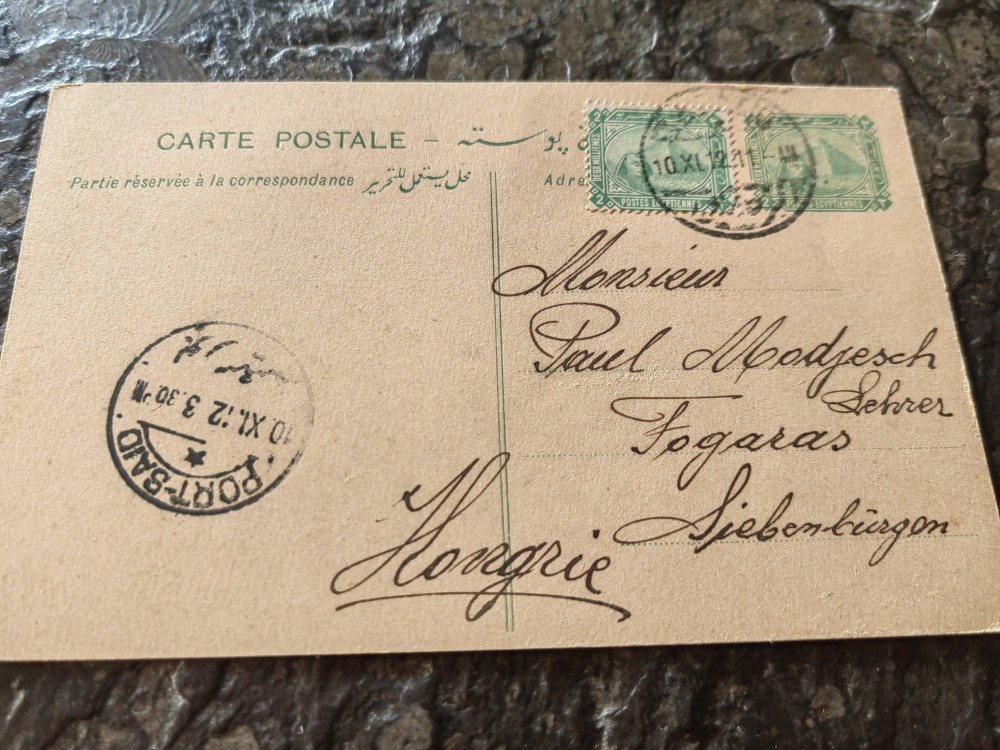 CARTE POSTALE – پوسته
Partie réservée à la correspondance محل يستعمل للتحرير
Adre
2 2
DEUX MILLIEMES
2 POSTES EGYPTIENNES 2
2 POSTES EGYPTIENNES
10.XI.12.11 - AM
Monsieur
Paul Modjesch
Lehrer
Fogaras
Siebenbürgen
Hongrie
بور سعيد
10 XI.12 3.30 PM
PORT-SAID